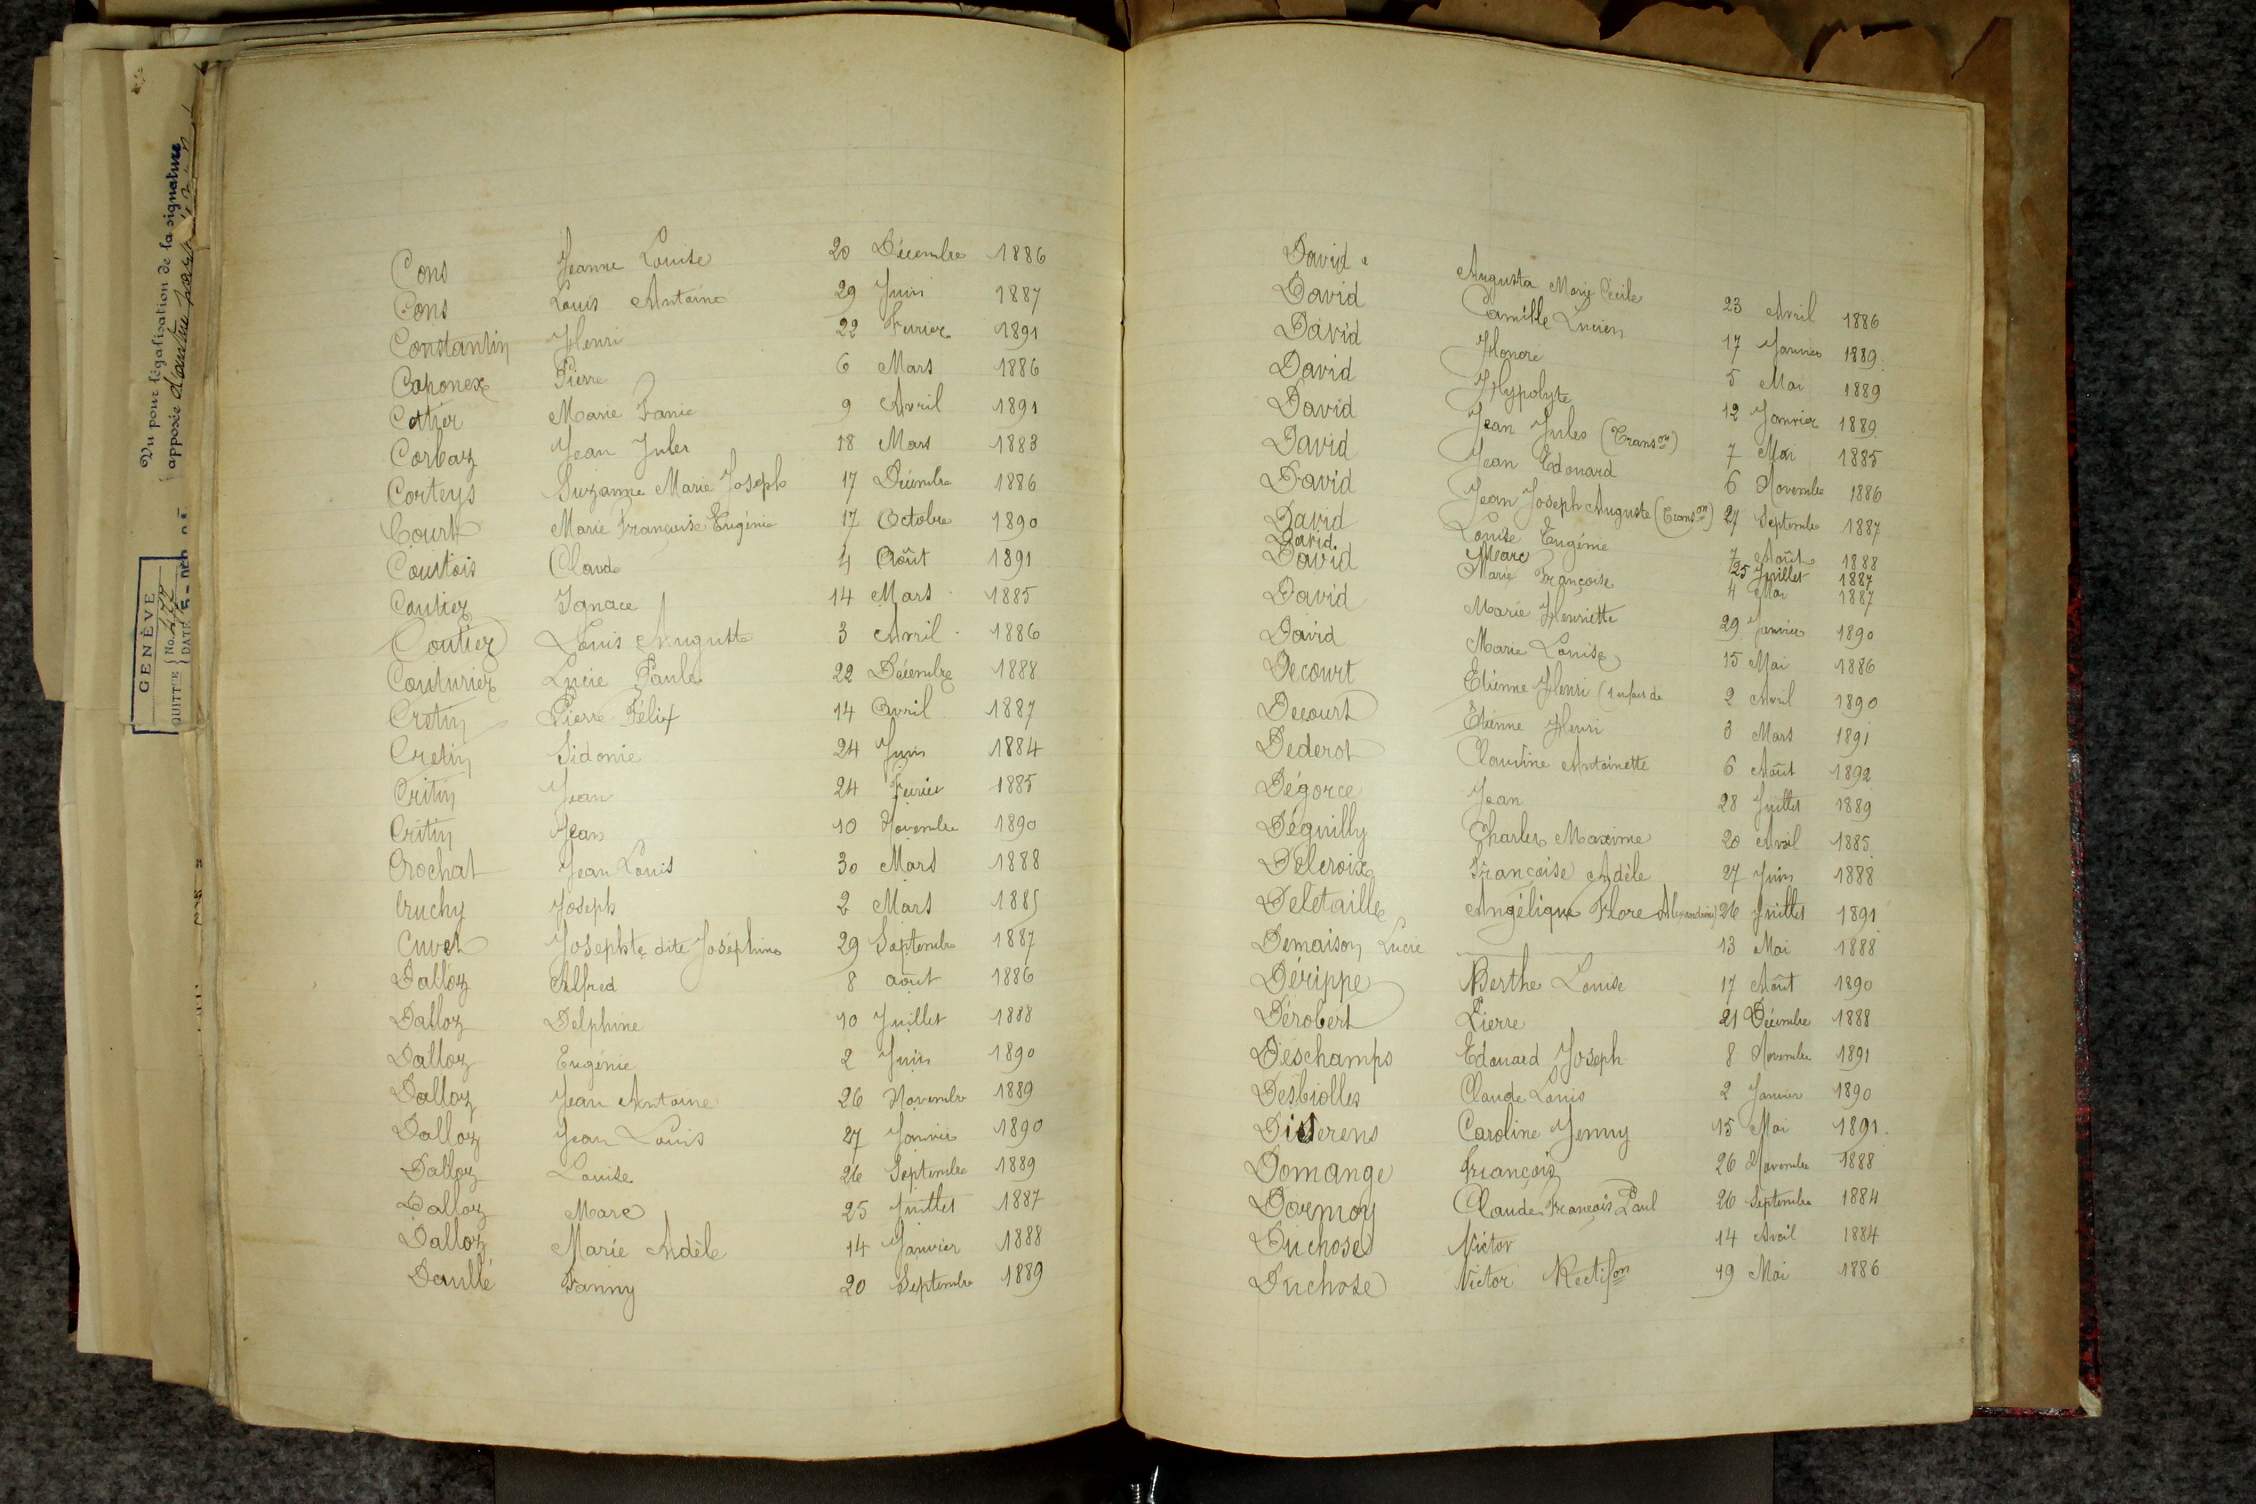 Vu pour légalisation de la signature
apposée d'autre part
GENÈVE
QUITT E No. 477
DATE
Cons Jeanne Louise 20 Décembre 1886
Cons Louis Antoine 29 Juin 1887
Constantin Henri 22 Fevrier 1891
Coponex Pierre 6 Mars 1886
Cottier Marie Fanie 9 Avril 1891
Corbaz Jean Jules 18 Mars 1883
Corteys Suzanne Marie Joseph 17 Décembre 1886
Court Marie Françoise Eugénie 17 Octobre 1890
Courtois Claude 4 Août 1891
Coutier Ignace 14 Mars 1885
Coutier Louis Auguste 3 Avril 1886
Couturier Lucie Paule 22 Décembre 1888
Cretin Pierre Félix 14 Avril 1887
Cretin Sidonie 24 Juin 1884
Critin Jean 24 Fevrier 1885
Critin Jean 10 Novembre 1890
Crochat Jean Louis 30 Mars 1888
Cruchy Joseph 2 Mars 1885
Cuvet Josephte dite Joséphine 29 Septembre 1887
Dalloz Alfred 8 août 1886
Dalloz Delphine 10 Juillet 1888
Dalloz Eugénie 2 Juin 1890
Dalloz Jean Antoine 26 Novembre 1889
Dalloz Jean Louis 27 Janvier 1890
Dalloz Louise 26 Septembre 1889
Dalloz Marc 25 Juillet 1887
Dalloz Marie Adèle 14 Janvier 1888
Daullé Fanny 20 Septembre 1889
David Augusta Marie Cécile 23 Avril 1886
David Camille Lucien 17 Janvier 1889
David Honoré 5 Mai 1889
David Hypolyte 12 Janvier 1889
David Jean Jules (Transon) 7 Mai 1885
David Jean Edouard 6 Novembre 1886
David Jean Joseph Auguste (Transon) 27 Septembre 1887
David Louise Eugénie 7 Août 1888
David Marc 25 Juillet 1887
David Marie Françoise 4 Mai 1887
David Marie Henriette 29 Janvier 1890
David Marie Louise 15 Mai 1886
Decourt Etienne Henri 2 Avril 1890
Decourt Etienne Henri 3 Mars 1891
Dederot Claudine Antoinette 6 Août 1892
Dégorce Jean 28 Juillet 1889
Déguilly Charles Maxime 20 Avril 1885
Delcroix Françoise Adèle 27 Juin 1888
Deletaille Angélique Flore Alexandrine 26 Juillet 1891
Demaison Lucie 13 Mai 1888
Dérippe Berthe Louise 17 Août 1890
Dérobert Pierre 21 Décembre 1888
Deschamps Edouard Joseph 8 Novembre 1891
Desbiolles Claude Louis 2 Janvier 1890
Diserens Caroline Jenny 15 Mai 1891
Domange François 26 Novembre 1888
Dormoy Claude François Paul 26 Septembre 1884
Duchose Victor 14 Avril 1884
Duchose Victor Rectifon 19 Mai 1886